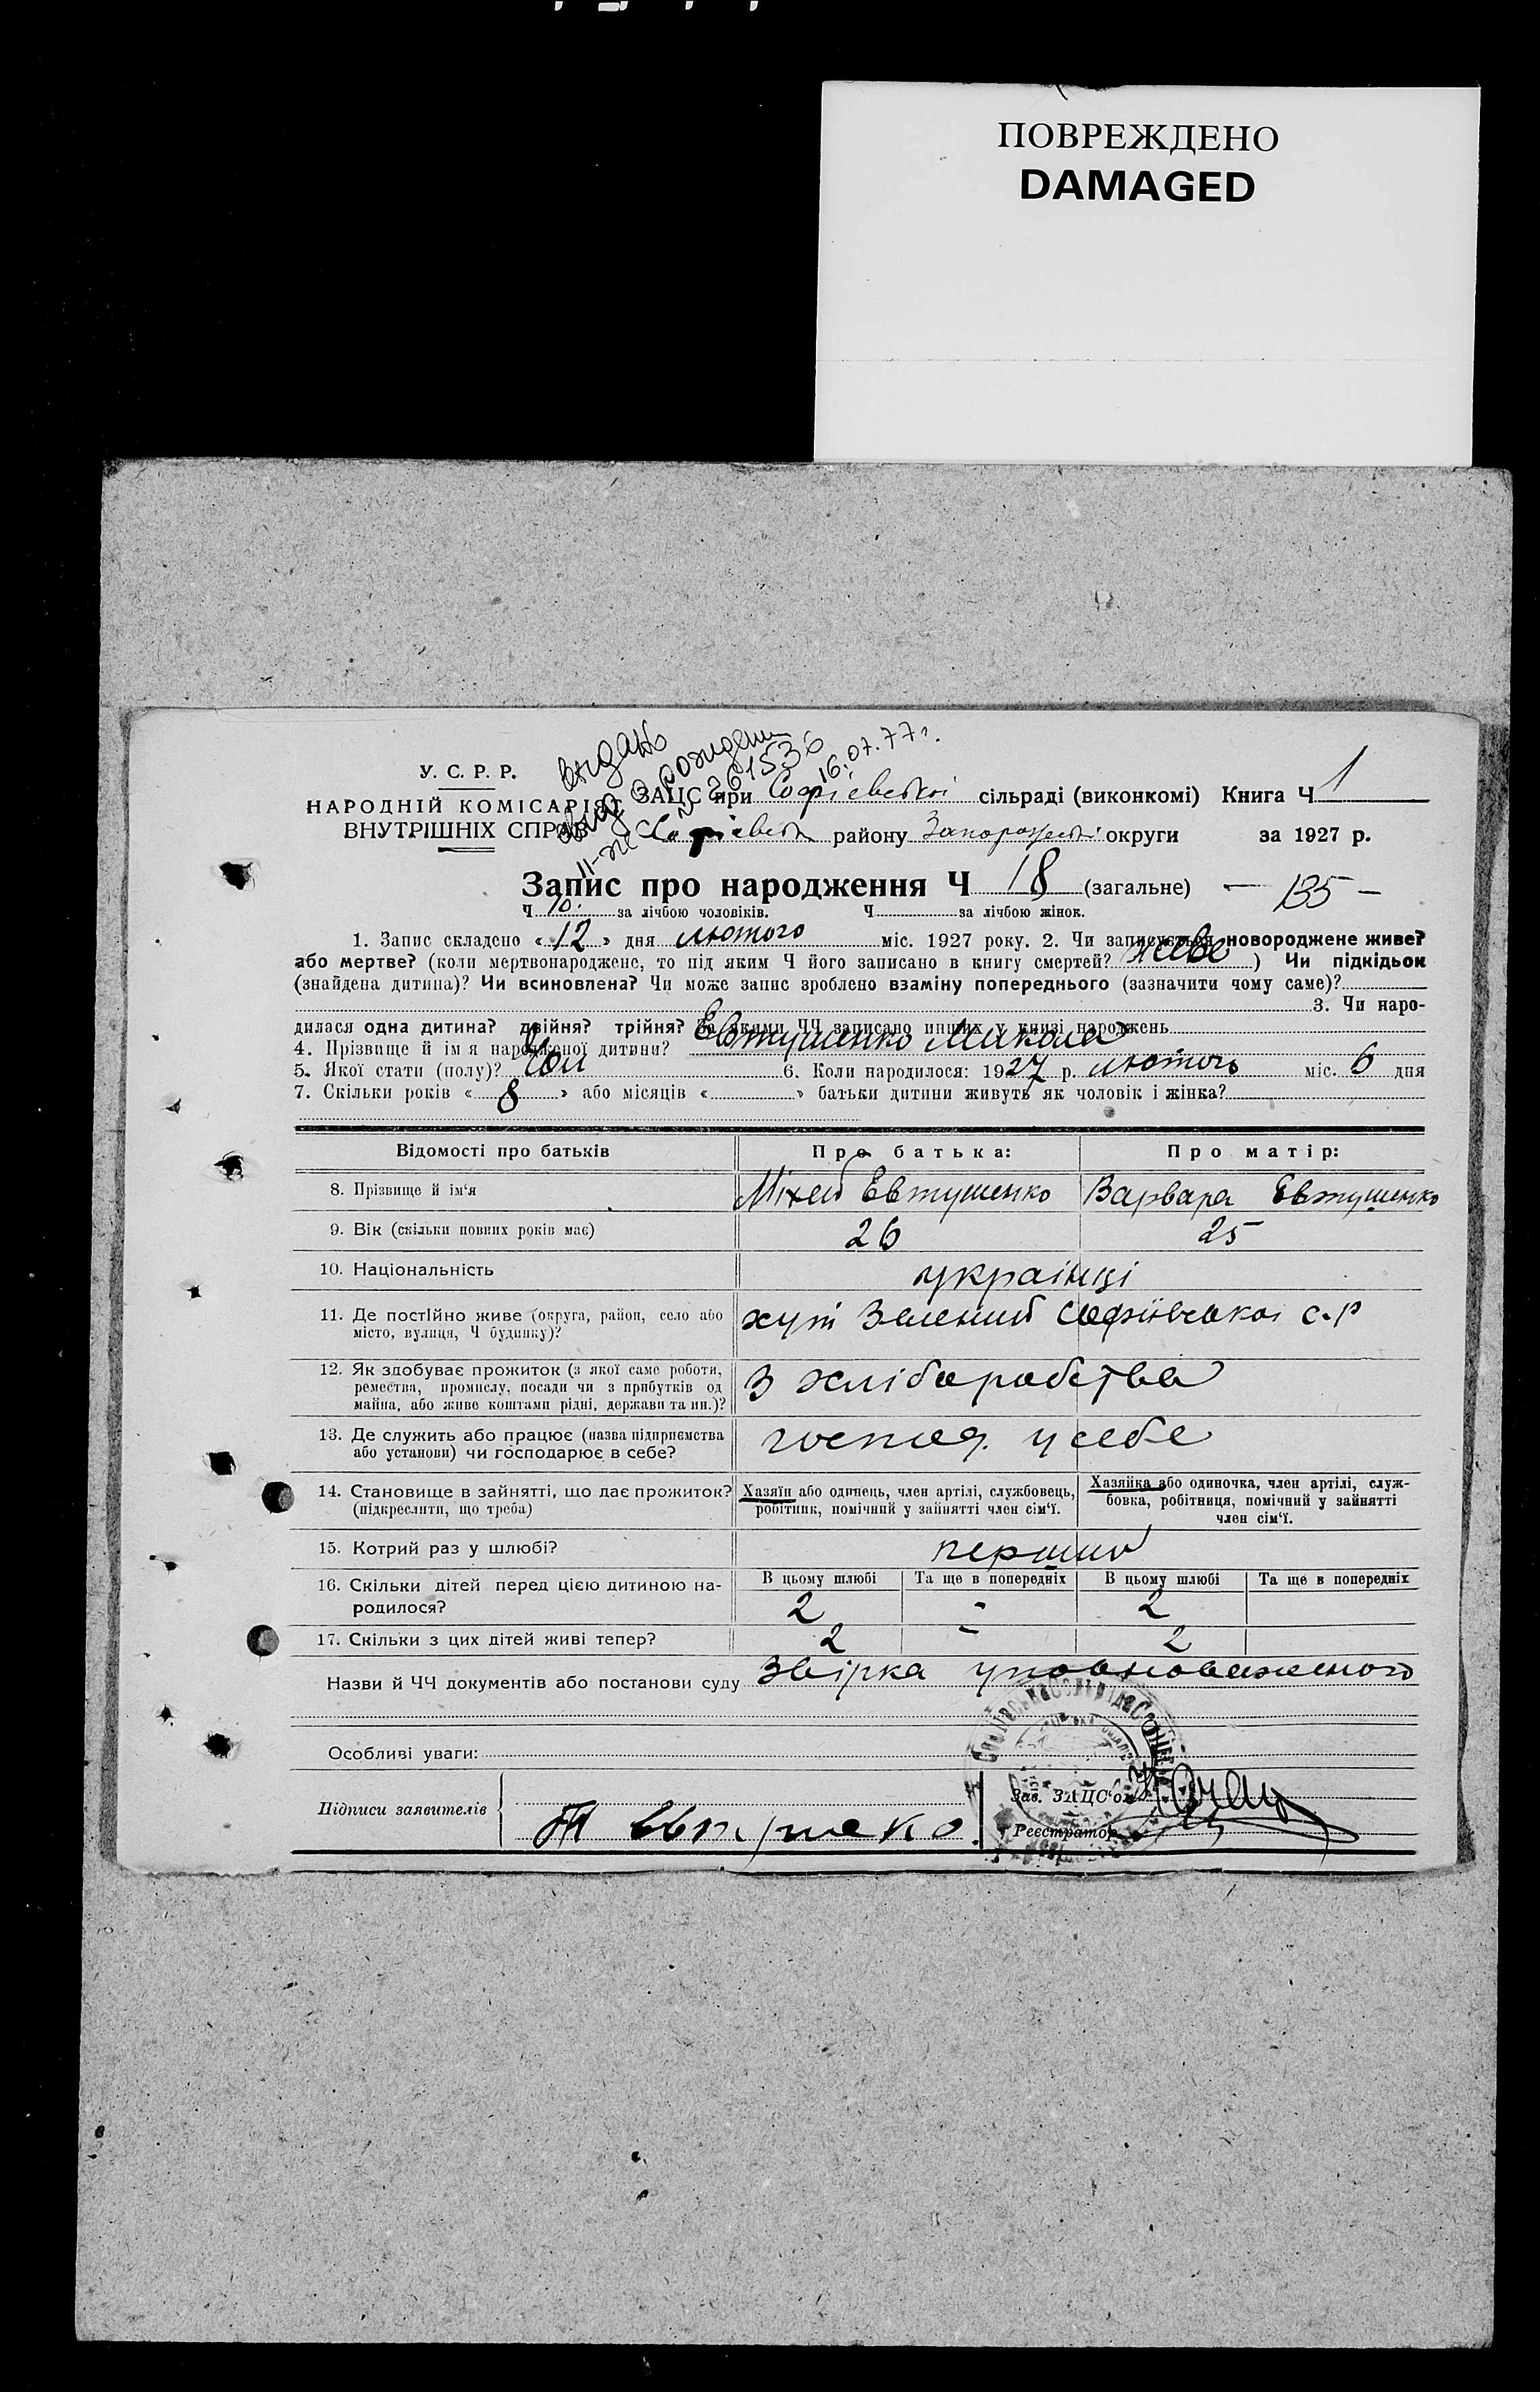 ПОВРЕЖДЕНО
DAMAGED
У. С. Р. Р.
НАРОДНІЙ КОМІСАРІЯТ
ВНУТРІШНІХ СПРАВ
выдано
рождени
261536
16.07.77 г.
ЗАЦС при Софіевської сільраді (виконкомі) Книга Ч 1
Софієвськ району Запорожської округи за 1927 р.
Запис про народження Ч 18 (загальне) — 135 —
Ч 10. за лічбою чоловіків. Ч за лічбою жінок.
1. Запис складено «12» дня лютого міс. 1927 року. 2. Чи записується новороджене живе?
або мертве? (коли мертвонароджене, то під яким Ч його записано в книгу смертей? живе) Чи підкідьок
(знайдена дитина)? Чи всиновлена? Чи може запис зроблено взаміну попереднього (зазначити чому саме)?
3. Чи наро-
дилася одна дитина? двійня? трійня? За якими ЧЧ записано инших у книзі народжень
4. Прізвище й ім я народженої дитини? Евтушенко Микола
5. Якої стати (полу)? Чол 6. Коли народилося: 1927 р. лютого міс. 6 дня
7. Скільки років «8» або місяців « » батьки дитини живуть як чоловік і жінка?
Відомості про батьків Про батька: Про матір:
8. Прізвище й ім‘я Міхей Евтушенко Варвара Евтушенко
9. Вік (скільки повних років має) 26 25
10. Національність українці
11. Де постійно живе (округа, район, село або
місто, вулиця, Ч будинку)? хут Зелений Софіівськоі с.р
12. Як здобуває прожиток (з якої саме роботи,
ремества, промислу, посади чи з прибутків од
майна, або живе коштами рідні, держави та ин.)? З хліборобства
13. Де служить або працює (назва підприємства
або установи) чи господарює в себе? господ. у себе
14. Становище в зайнятті, що дає прожиток?
(підкреслити, що треба)
Хазяїн або одинець, член артілі, службовець,
робітник, помічний у зайнятті член сім‘ї.
Хазяйка або одиночка, член артілі, служ-
бовка, робітниця, помічний у зайнятті
член сім‘ї.
15. Котрий раз у шлюбі? перший
16. Скільки дітей перед цією дитиною на-
родилося?
В цьому шлюбі Та ще в попередніх В цьому шлюбі Та ще в попередніх
2 - 2
17. Скільки з цих дітей живі тепер? 2 - 2
Назви й ЧЧ документів або постанови суду Звірка уповноваженого
Особливі уваги:
Підписи заявителів
Зав. ЗАЦС'ом
Реєстратор